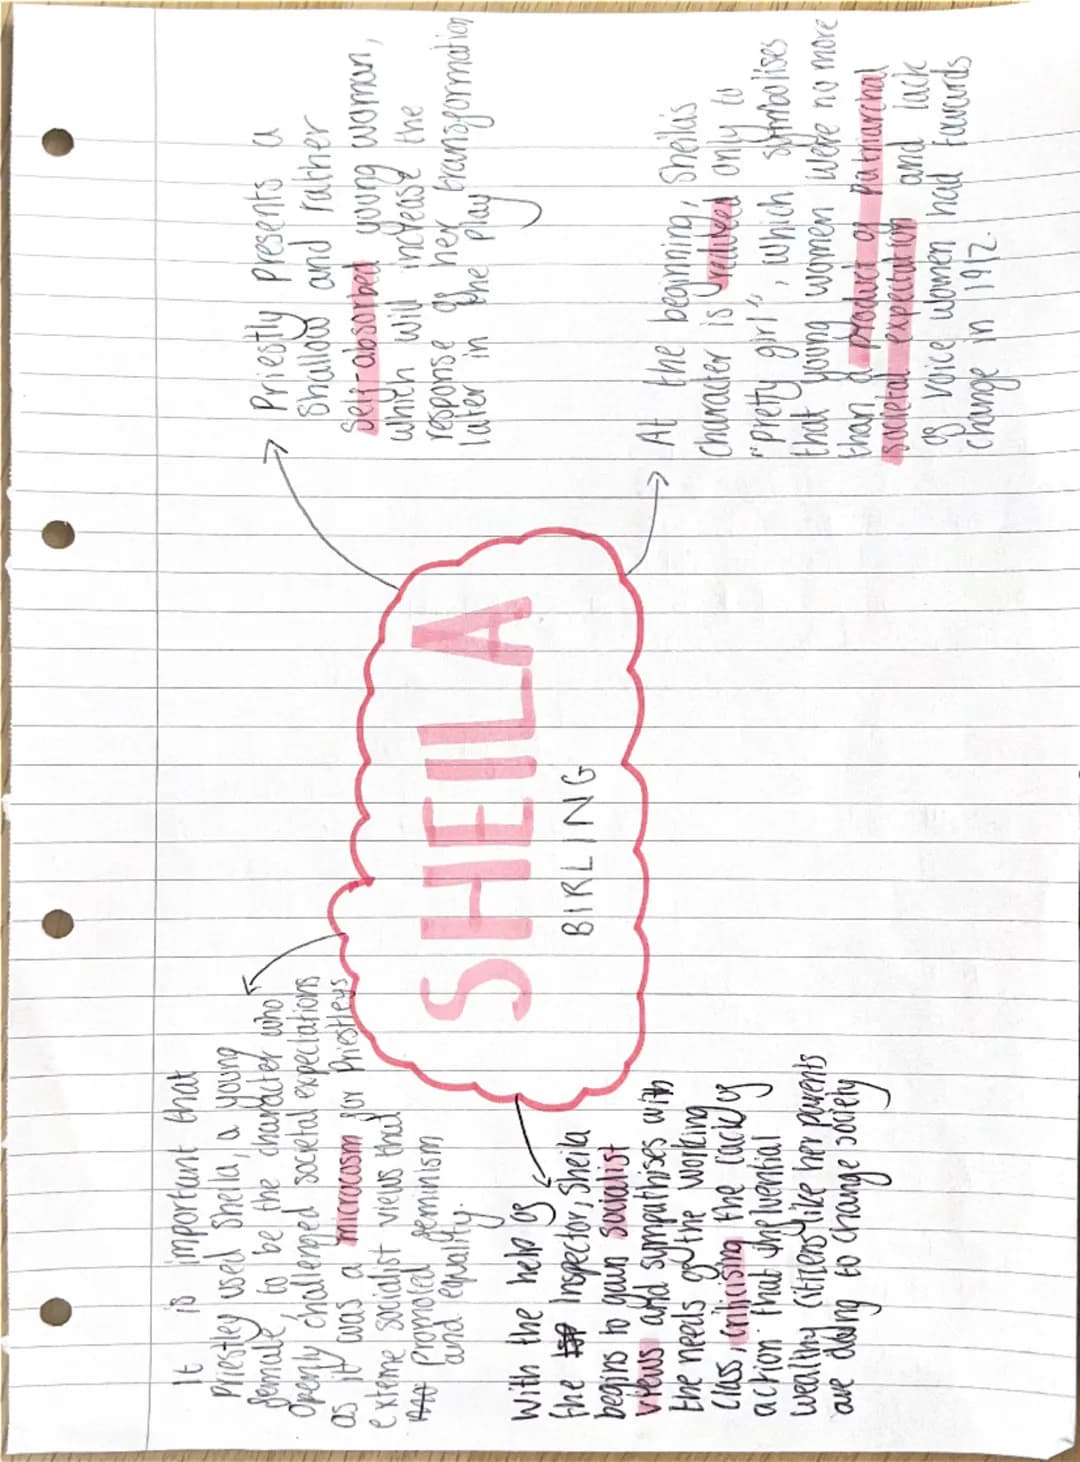 It is important that
Priestley used Sheila, a young
female, to be the character who
openly challenged societal expectations
as it was a microcosm for Priestleys
exteme socialist views that
promoted feminism
and equality.
Priestly presents a
shallow and rather
self-absorbed young woman,
which will increase the
response of her transformation
later in the play
SHEILA
BIRLING
With the help of
the Inspector, Sheila
begins to gain socialist
views and sympathises with
the needs of the working
class, criticising the lack of
action that influential
wealthy citizens like her parents
are doing to change society
At the beginning, Sheila's
character is reduced only to
"pretty girl", which symbolises
that young women were no more
than a product of patriarchal
societal expectation and lack
of voice women had towards
change in 1912.